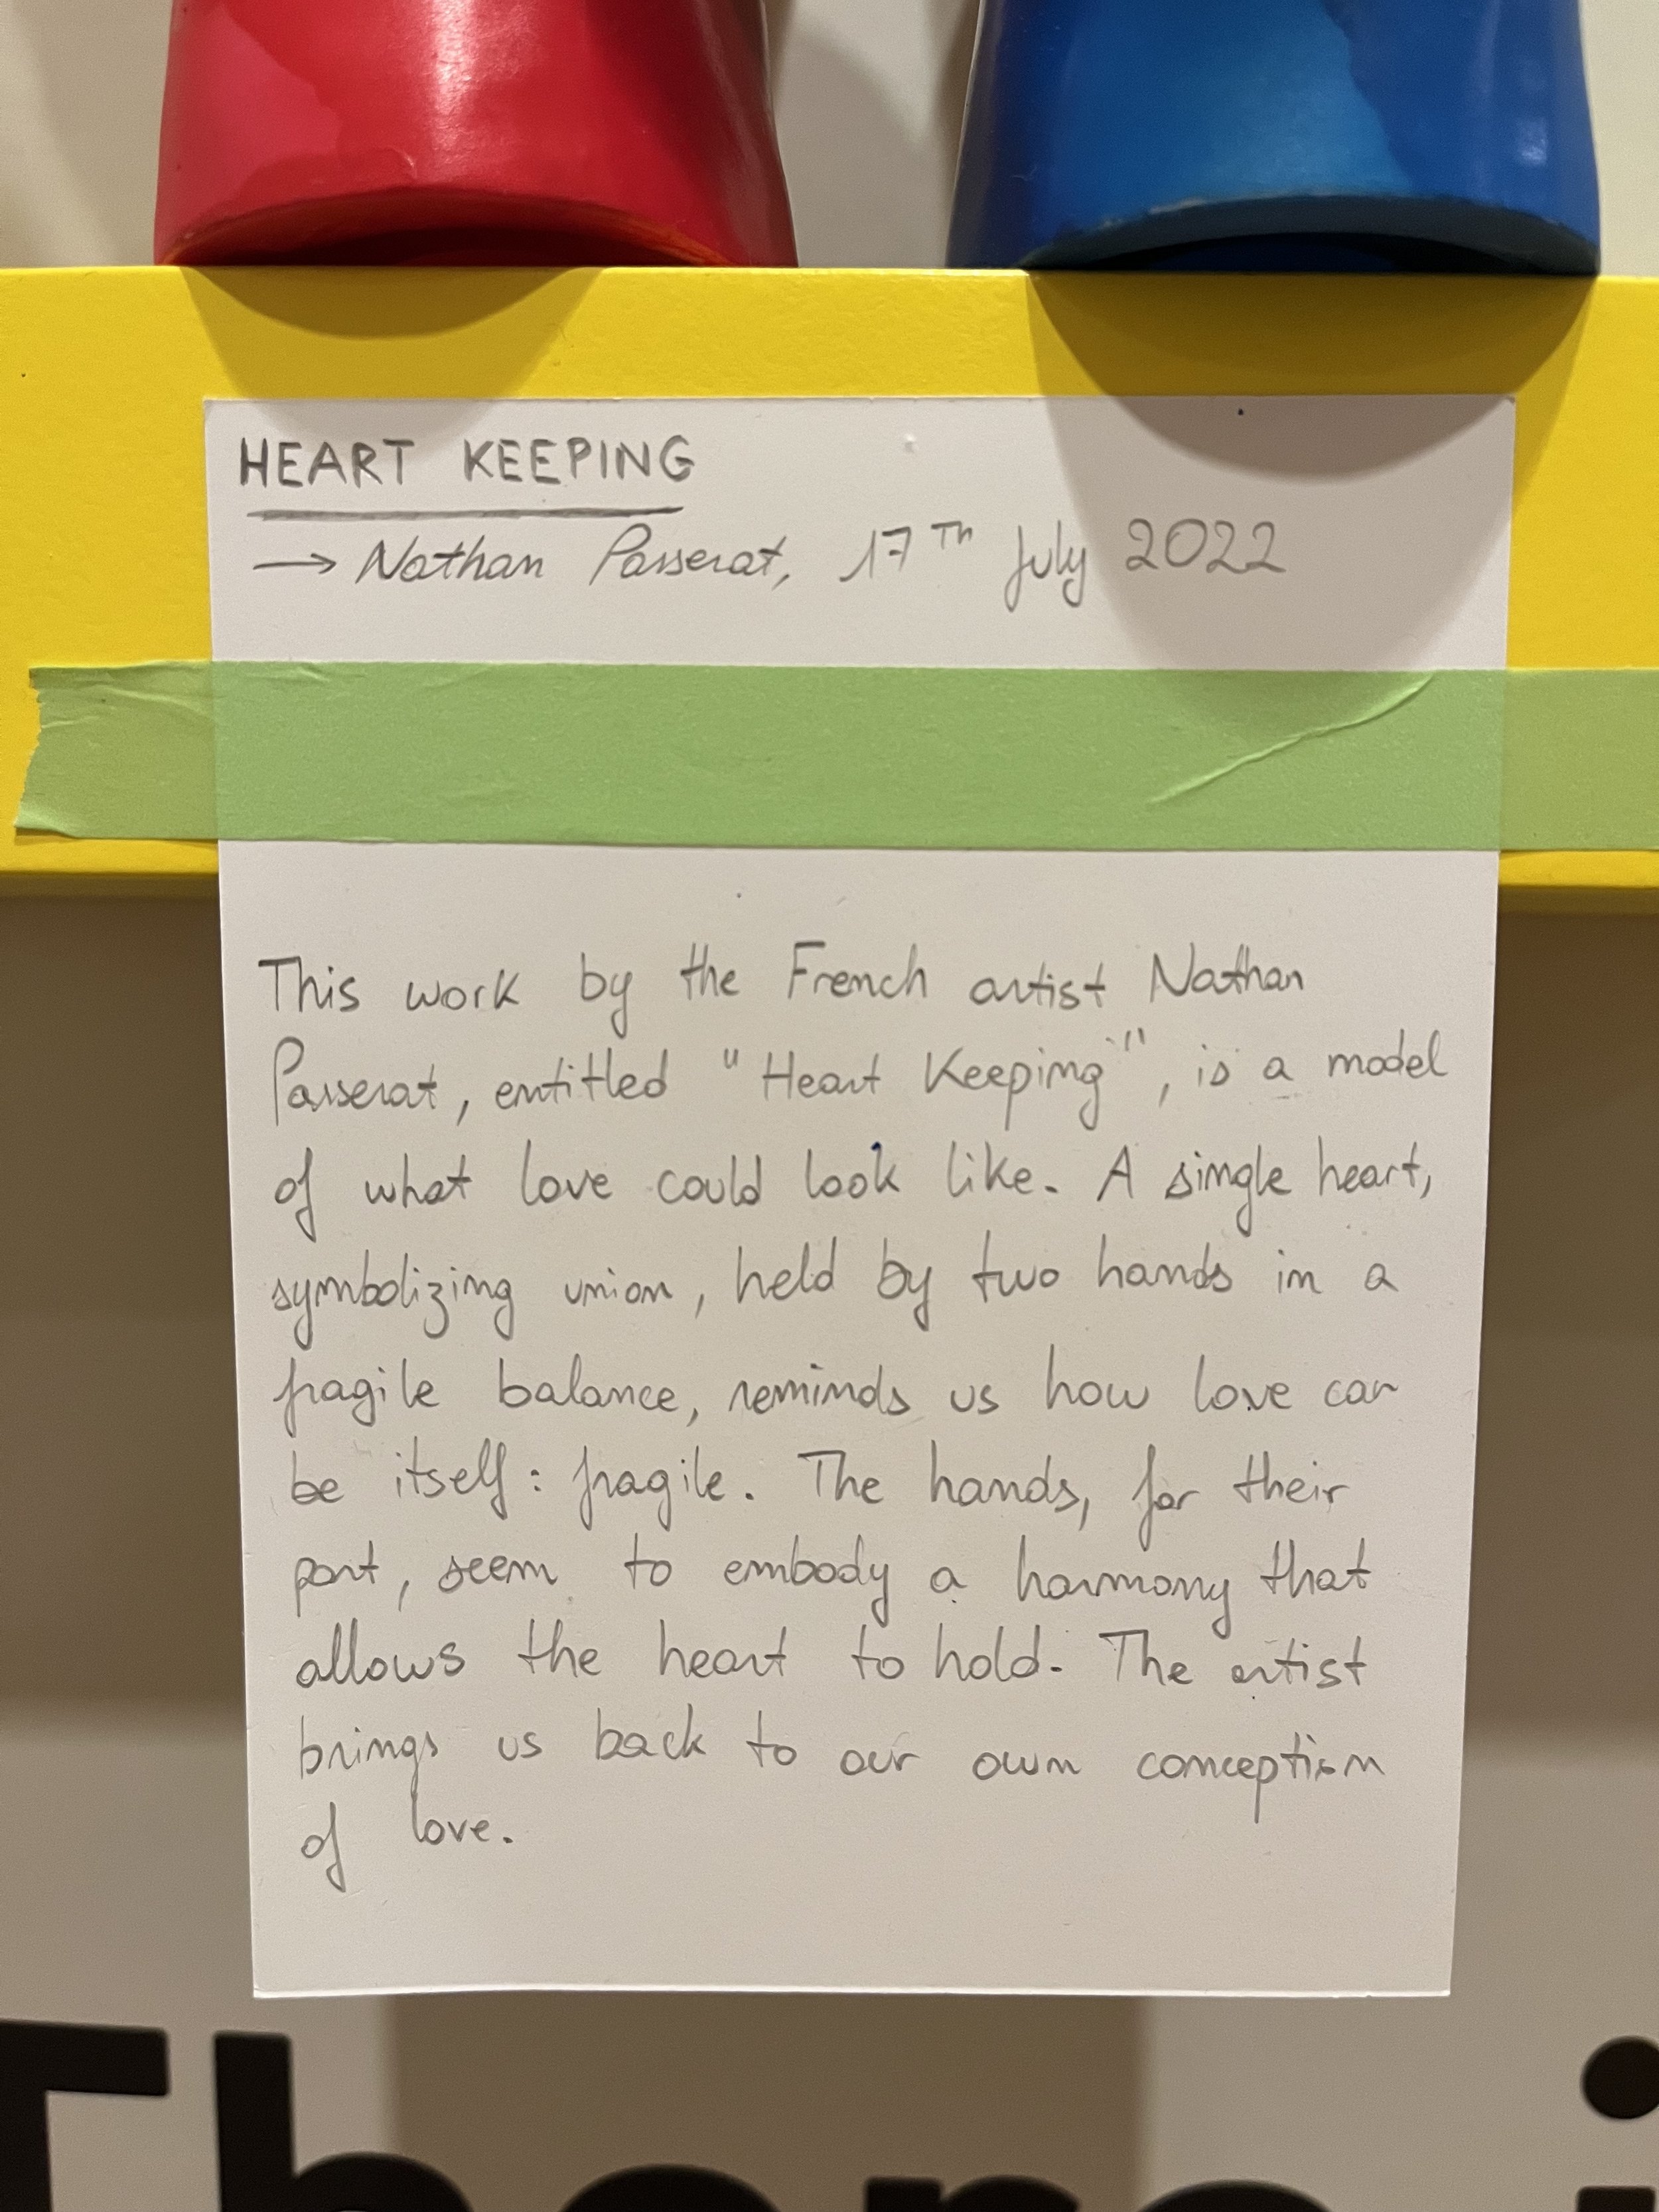 HEART KEEPING
→ Nathan Passerat, 17Th July 2022
This work by the French artist Nathan
Passerat, entitled "Heart Keeping", is a model
of what love could look like. A single heart,
symbolizing union, held by two hands in a
fragile balance, reminds us how love can
be itself: fragile. The hands, for their
part, seem to embody a harmony that
allows the heart to hold. The artist
brings us back to our own conception
of love.